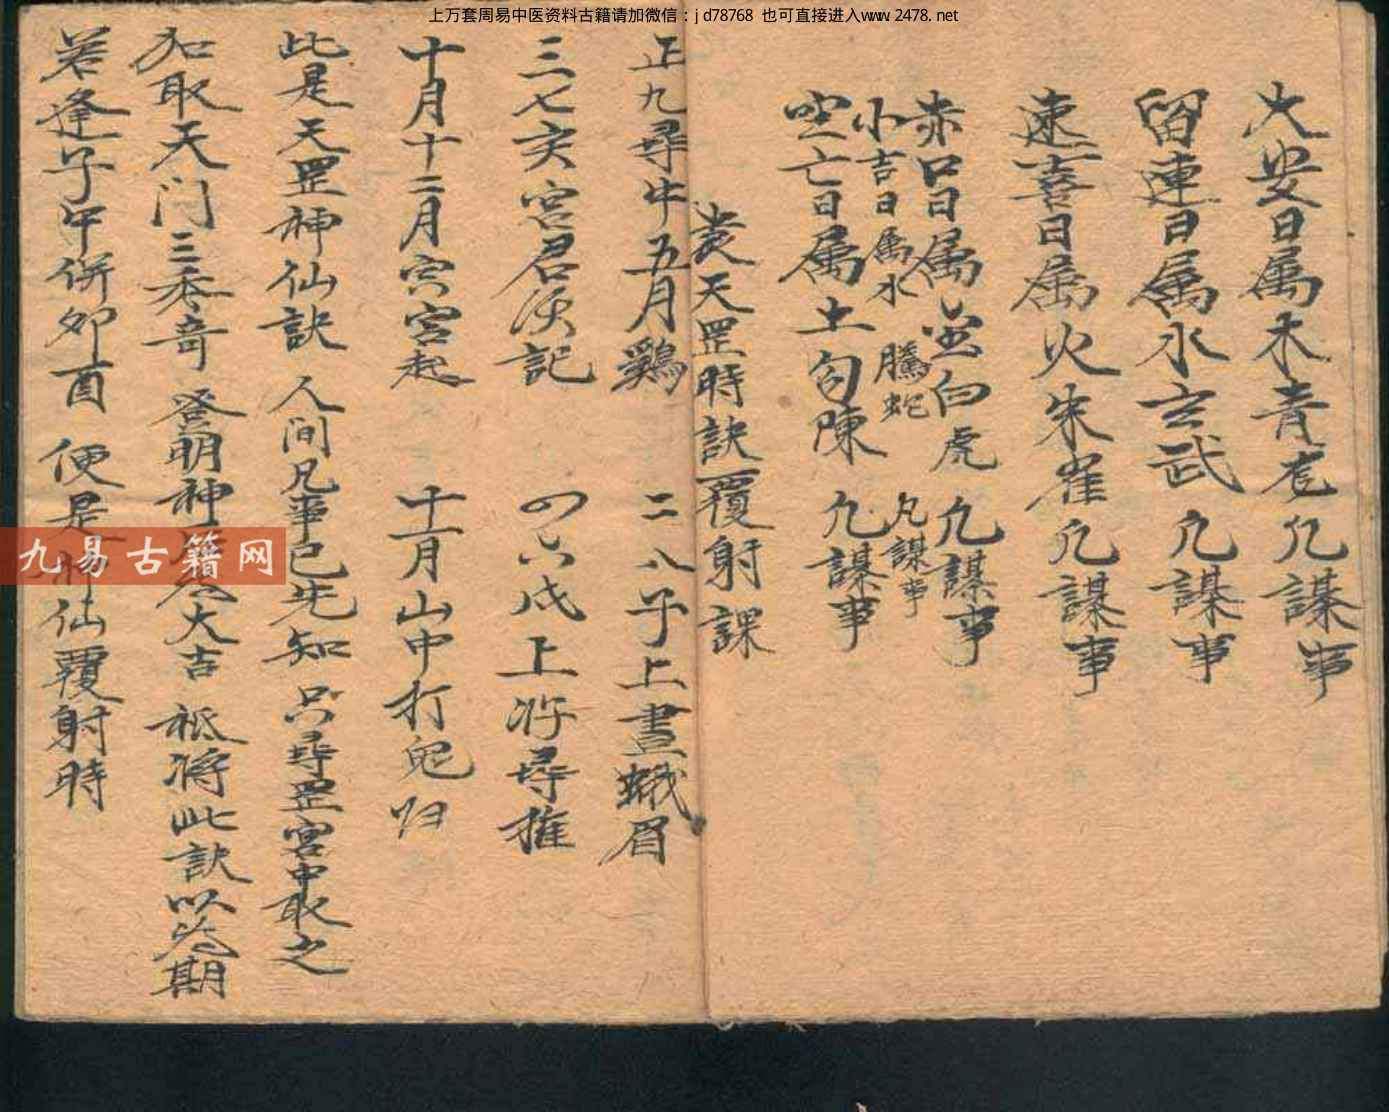 上万套周易中医资料古籍请加微信：jd78768 也可直接进入www.2478.net
大安日属木青龙凡謀事
留連日属水玄武 凡謀事
速喜日属火朱雀凡謀事
赤口日属金白虎 凡謀事
小吉日属水 騰蛇 凡謀事
空亡日属土勾陳 凡謀事
袁天罡時訣覆射課
正九尋牛五月鷄 二八子上畫蛾眉
三七亥宮君須記 四六戌上將尋推
十月十二月宮起 十一月山中打兔归
此是天罡神仙訣 人間凡事已先知 只尋罡宮中取之
加取天门三奇 登明神后大吉 祗將此訣以為期
若逢子午併卯酉 便是神仙覆射時
九易古籍网